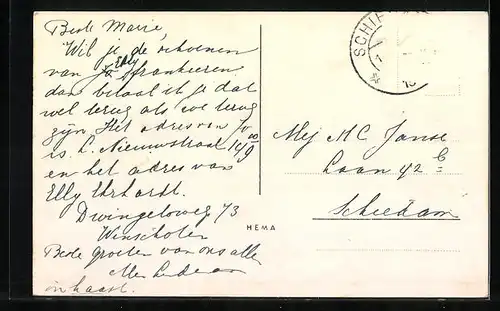 Beste Marie,
Wil je de schoenen
van Jo Elly frankeeren
dan betaal ik je dat
wel terug als we terug
zijn. Het adres van Jo
is. L. Nieuwstraat 149
en het adres van
Elly Ehrhardt.
Dwingeloweg 73
Winschoten
Beste groeten van ons allen
in haast.
SCHIP
Mej MC Janse
Laan 42
Schiedam
HEMA